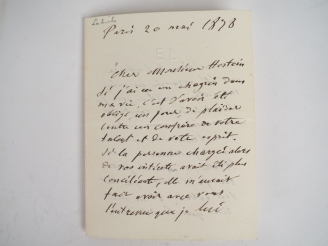 Labiche
Paris 20 mai 1878
Cher Monsieur Hostein
Si j'ai eu un chagrin dans
ma vie, c'est d'avoir été
obligé un jour de plaider
contre un confrère de votre
talent et de votre esprit.
Si la personne chargée alors
de vos intérêts, avait été plus
conciliante, elle m'aurait
fait avoir avec vous
l'entrevue que je